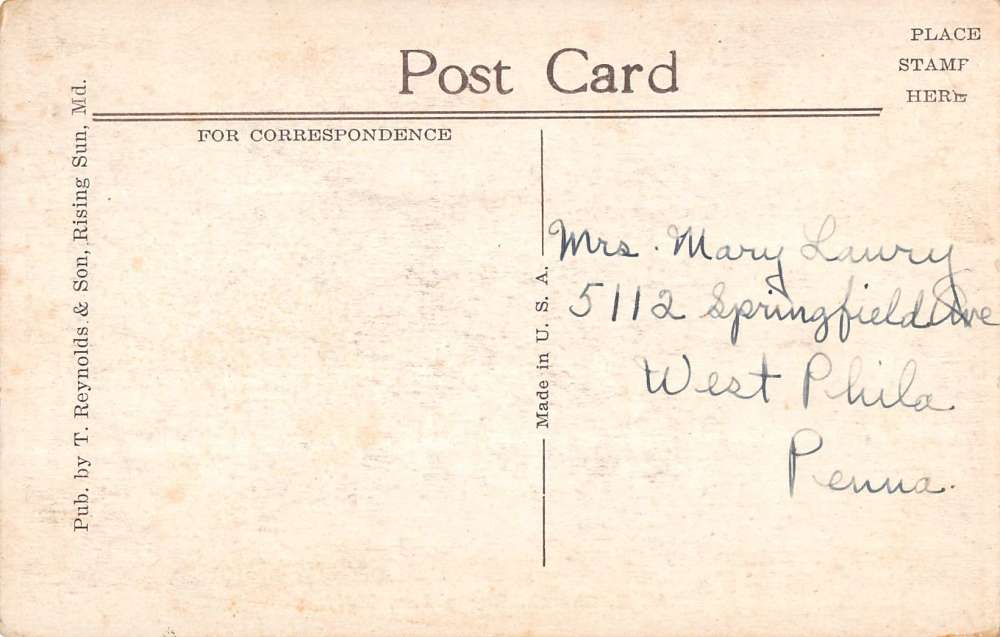 Post Card
PLACE
STAMP
HERE
FOR CORRESPONDENCE
Pub. by T. Reynolds & Son, Rising Sun, Md.
Made in U. S. A.
Mrs. Mary Lawry
5112 Springfield Ave
West Phila.
Penna.